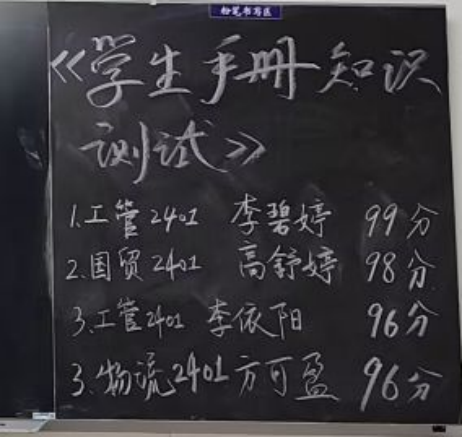 粉笔书写区
《学生手册知识
测试》
1.工管2401 李碧婷 99分
2.国贸2401 高舒婷 98分
3.工管2401 李依阳 96分
3.物流2401 方可盈 96分